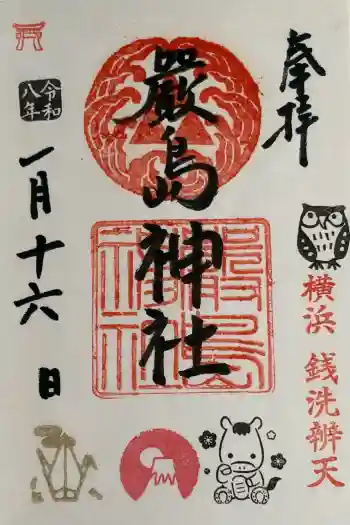 奉拝
横浜 銭洗辨天
嚴島神社
嚴島神社
令和八年
一月十六日